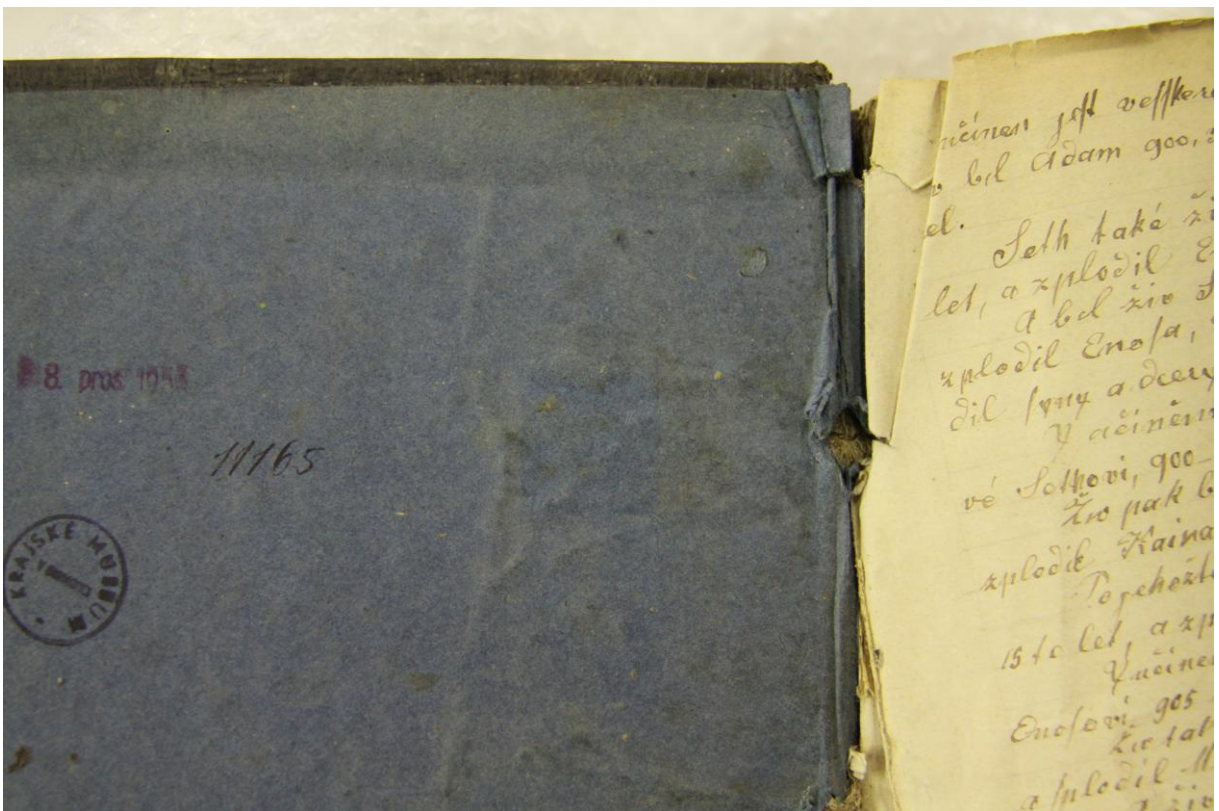 8. pros 1953
11165
KRAJSKÉ MUZEUM
učinen jest
bil Adam 900,
el.
Seth také ži
let, a zplodil E
A bil živ S
zplodil Enosa,
dil syny a dcery
Y učiněn
vé Sethovi, 900
Živ pak b
zplodil Kaina
Po gehožto
15 to let, a zp
Y učinen
Enosovi, 905
a splodil M